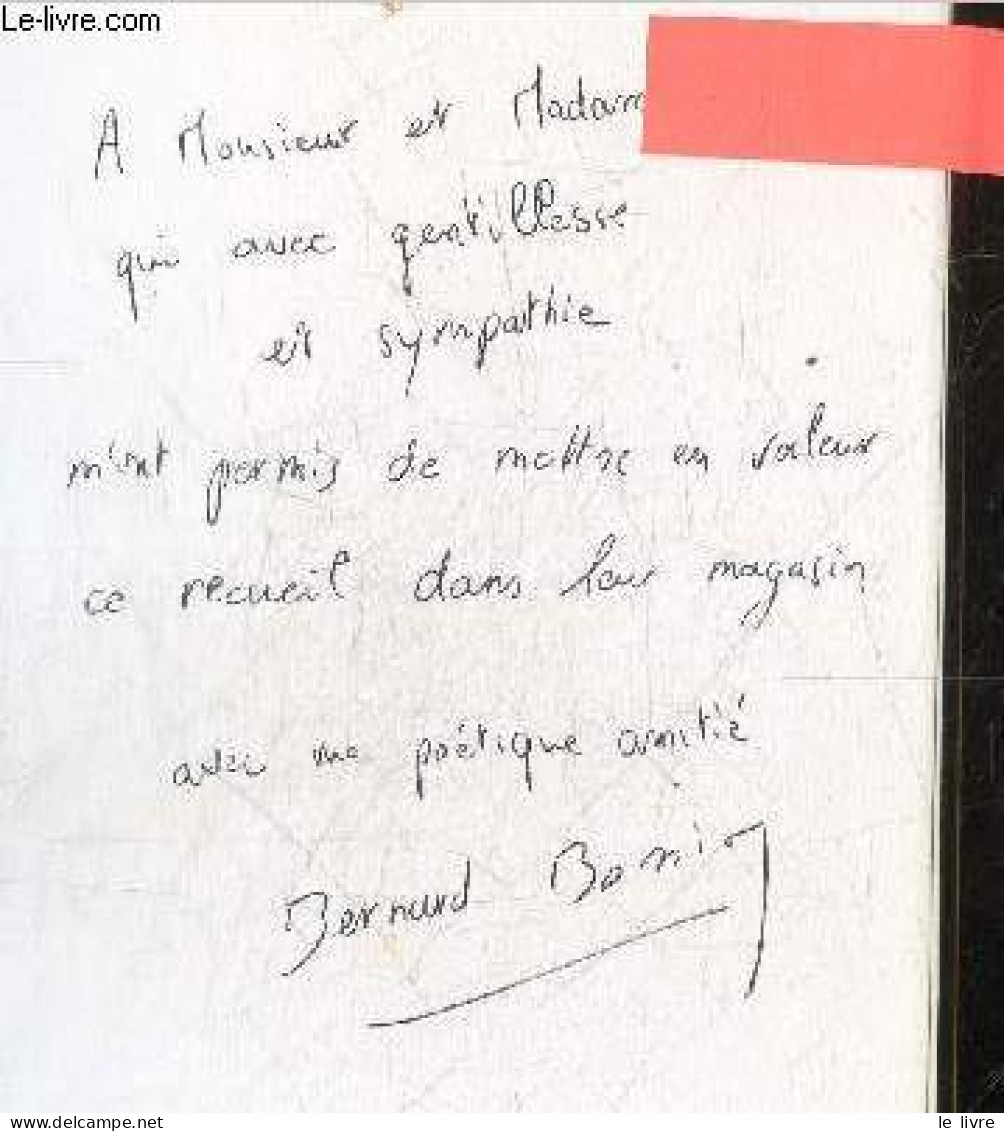 Le-livre.com
A Monsieur et Madam
qui avec gentillesse
et sympathie
m'ont permis de mettre en valeur
ce recueil dans leur magasin
avec ma poétique amitié
Bernard
le livre